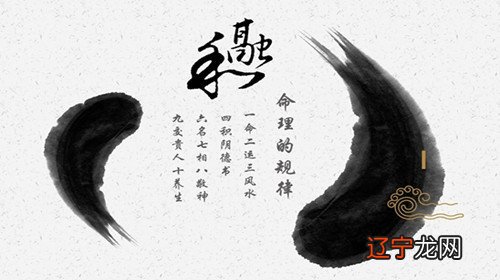 命理的规律
一命二运三风水
四积阴德书
六名七相八敬神
九交贵人十养生
辽宁龙网